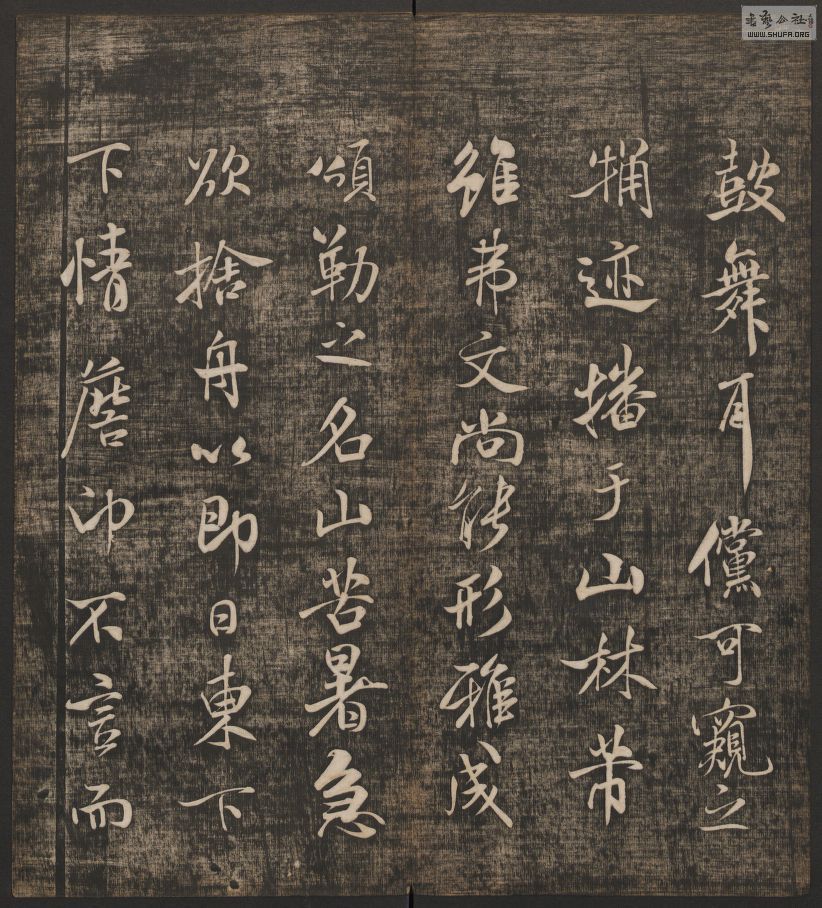 鼓舞耳儻可窺之
牅迹播于山林芾
雖芾文尚能形雅成
頌勒之名山苦暑急
欲捨舟以即日東下
下情詹卬不言而
書藝公社
WWW.SHUFA.ORG